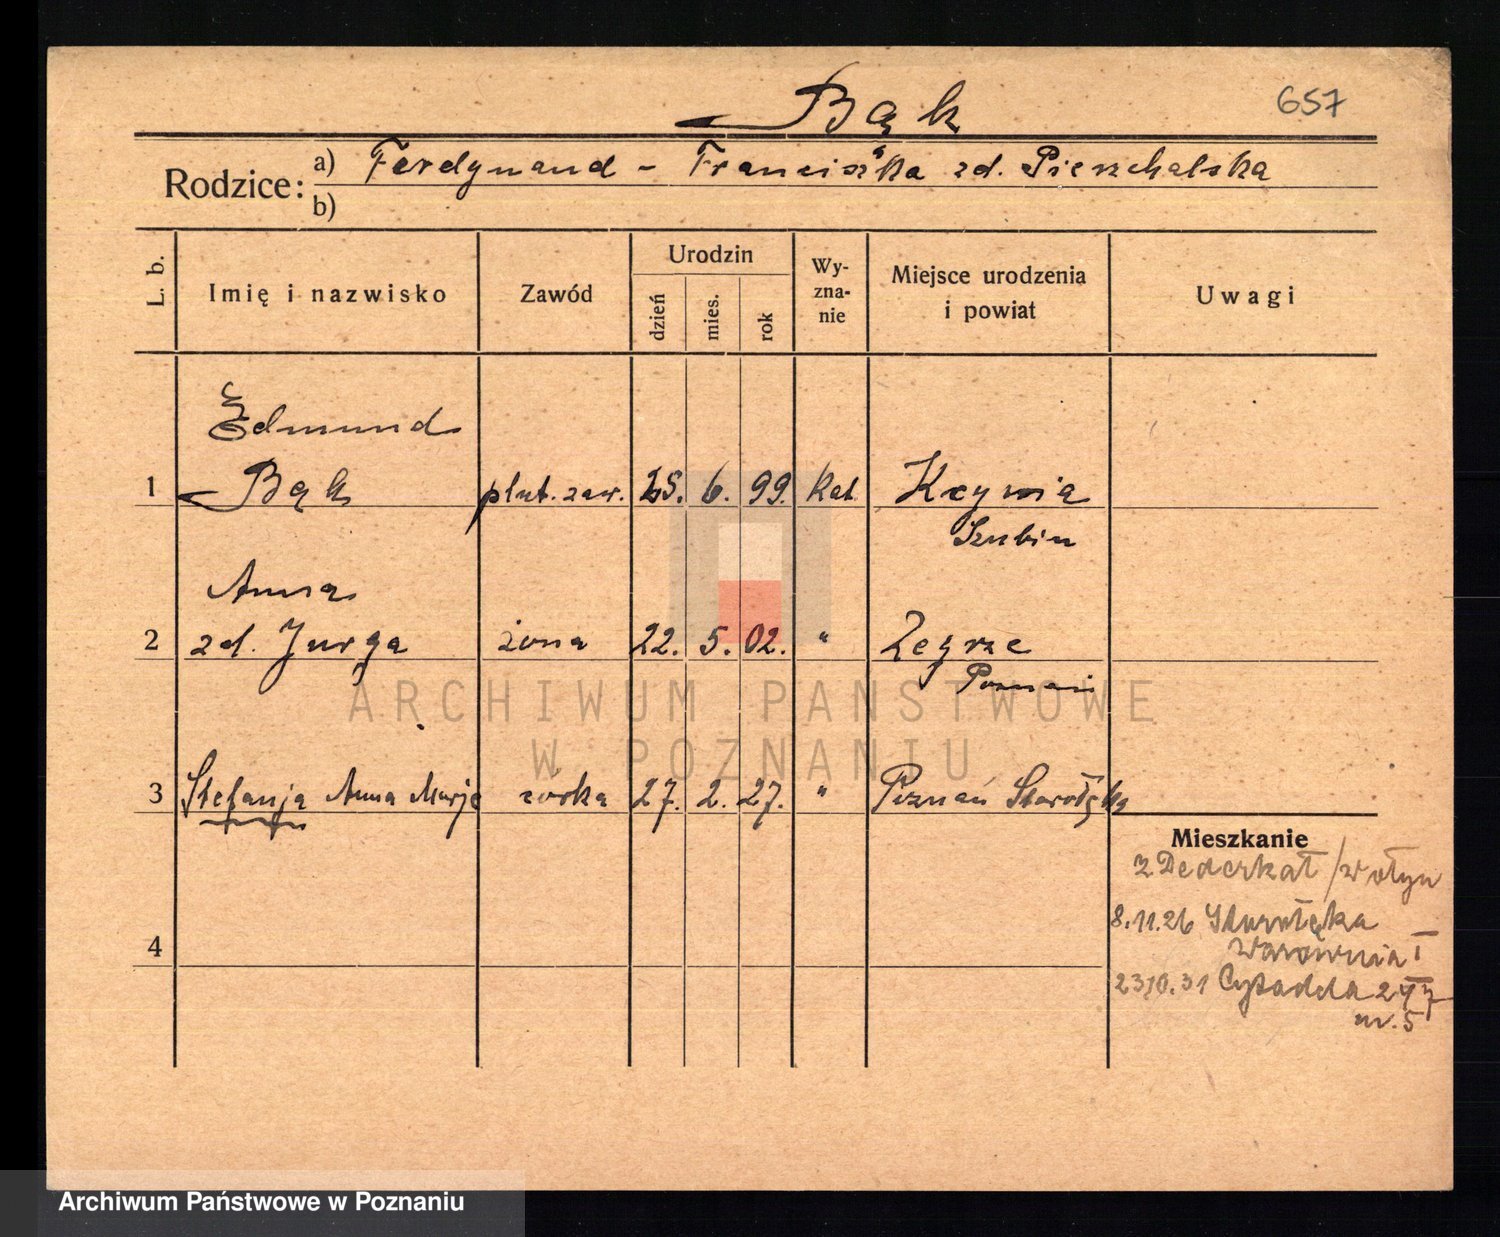 Bąk
657
Rodzice:
a) Ferdynand - Franciszka zd. Pierzchalska
b)
L. b.
Imię i nazwisko
Zawód
Urodzin
dzień
mies.
rok
Wy-
zna-
nie
Miejsce urodzenia
i powiat
Uwagi
Edmund
1 Bąk plut. zaw. 25. 6. 99. kat. Kcynia
Szubin
Anna
2 zd. Jurga żona 22. 5. 02. " Zegrze
Poznań
3 Stefanja Anna Marja córka 27. 2. 27. " Poznań Starołęka
Mieszkanie
z Dederkał / Wołyn
8.11.26 Starołęka
Warownia I
4
23/10.31 Cytadela
nr. 5
ARCHIWUM PAŃSTWOWE
W POZNANIU
Archiwum Państwowe w Poznaniu